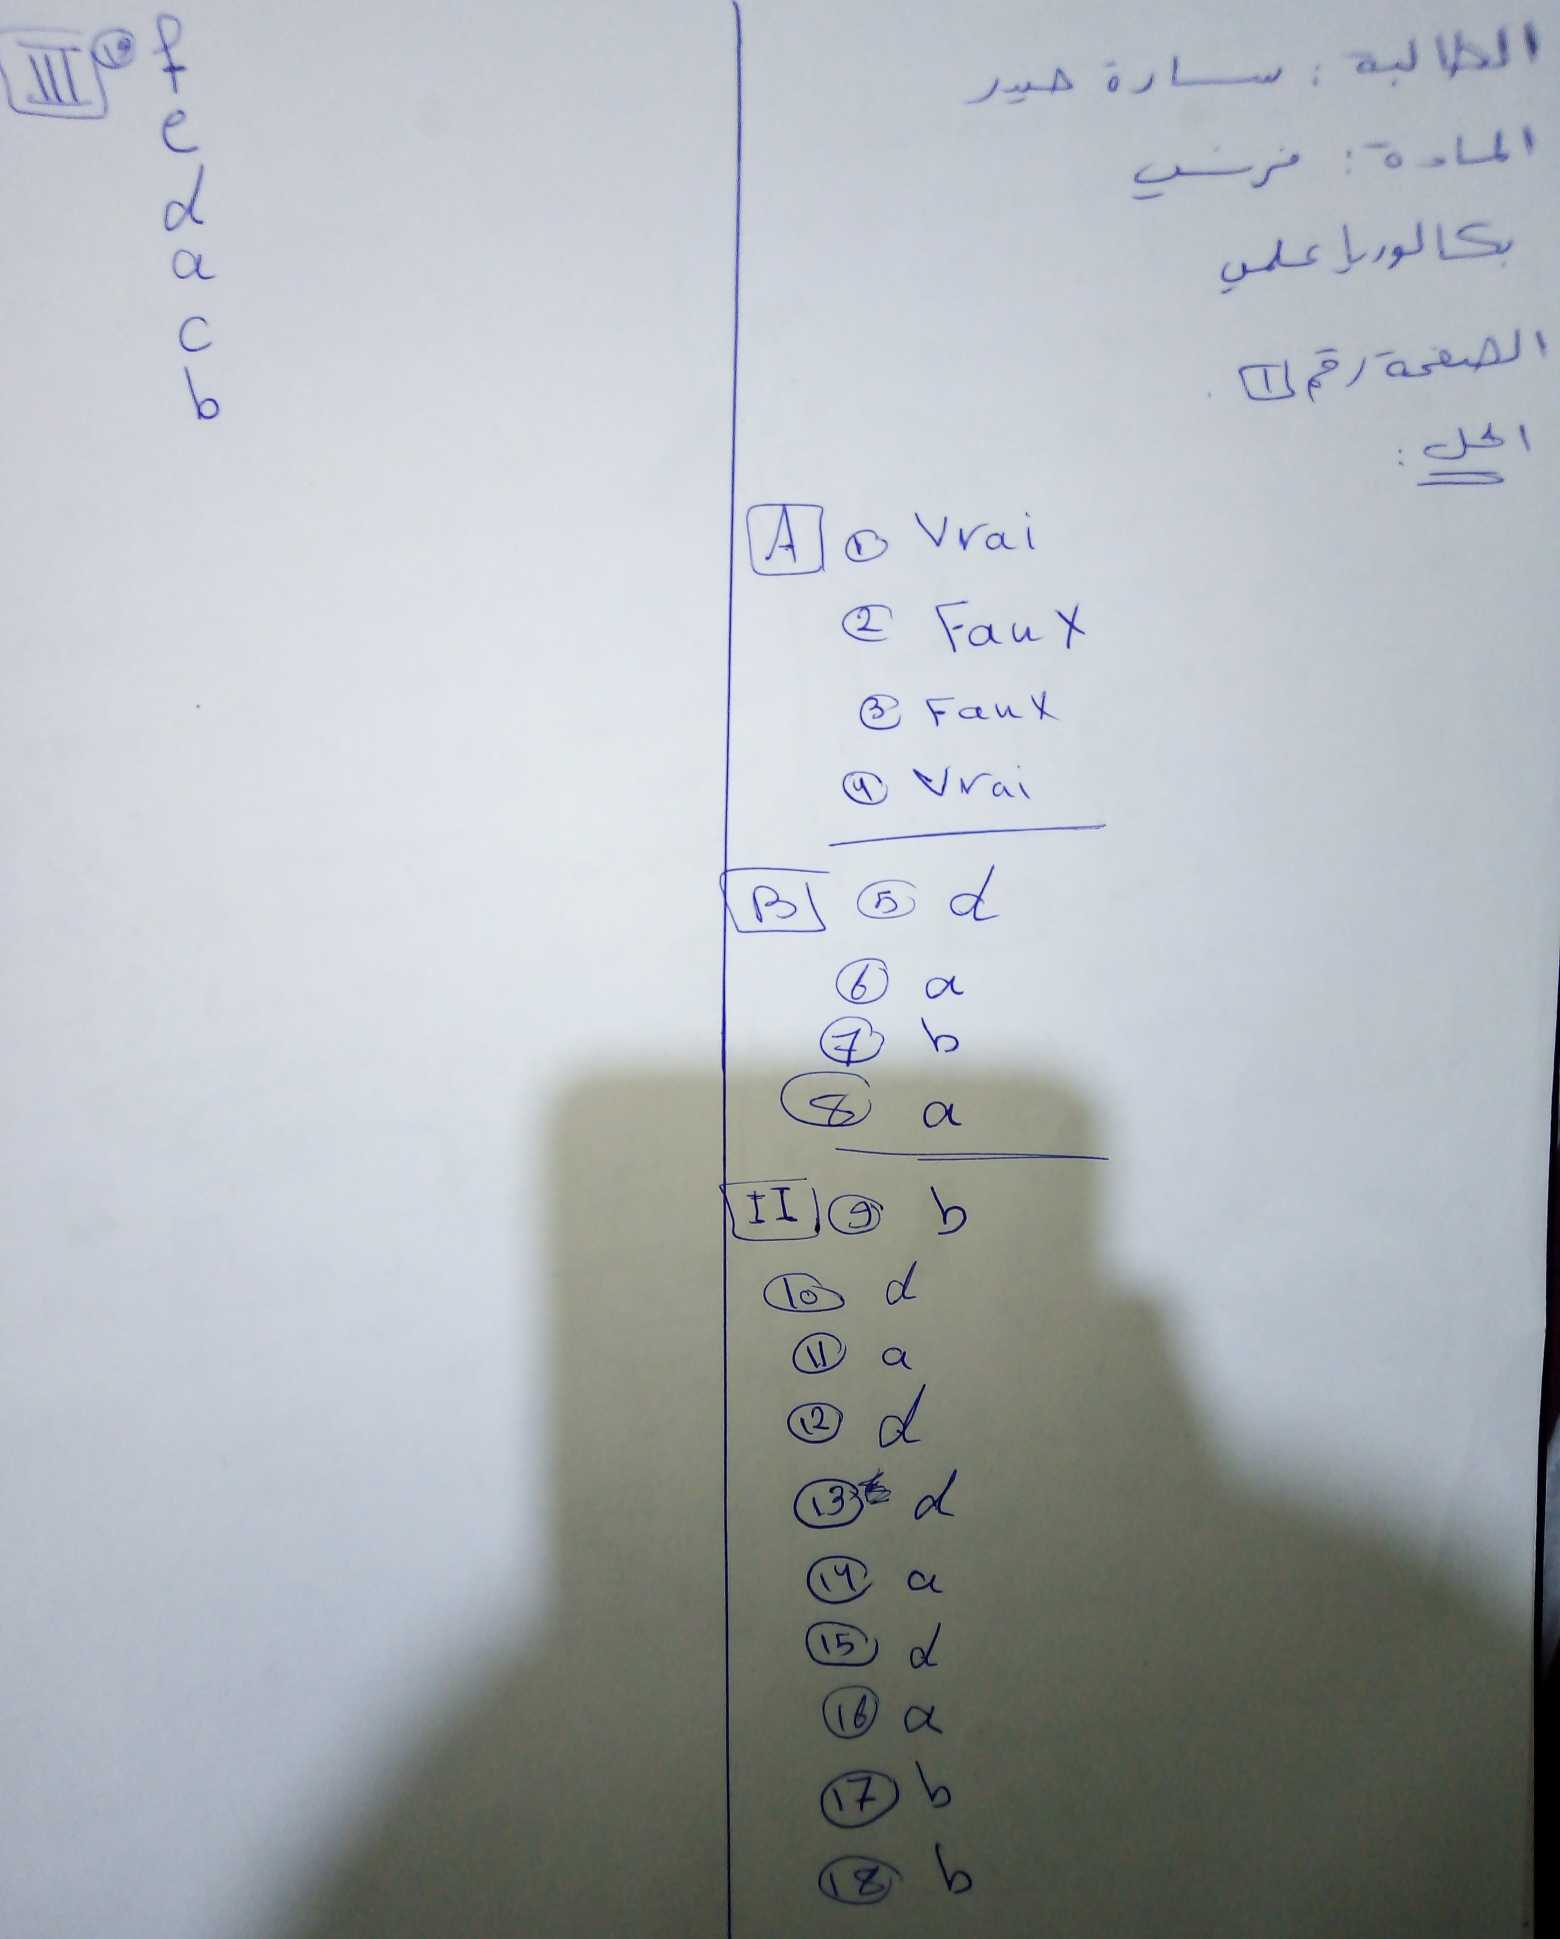 الطالبة : سارة حيدر
المادة : فرنسي
بكالوريا علمي
الصفحة رقم 1
الحل :
A 1 Vrai
2 Faux
3 Faux
4 Vrai
B 5 d
6 a
7 b
8 a
II 9 b
10 d
11 a
12 d
13 d
14 a
15 d
16 a
17 b
18 b
III 19 f
e
d
a
c
b